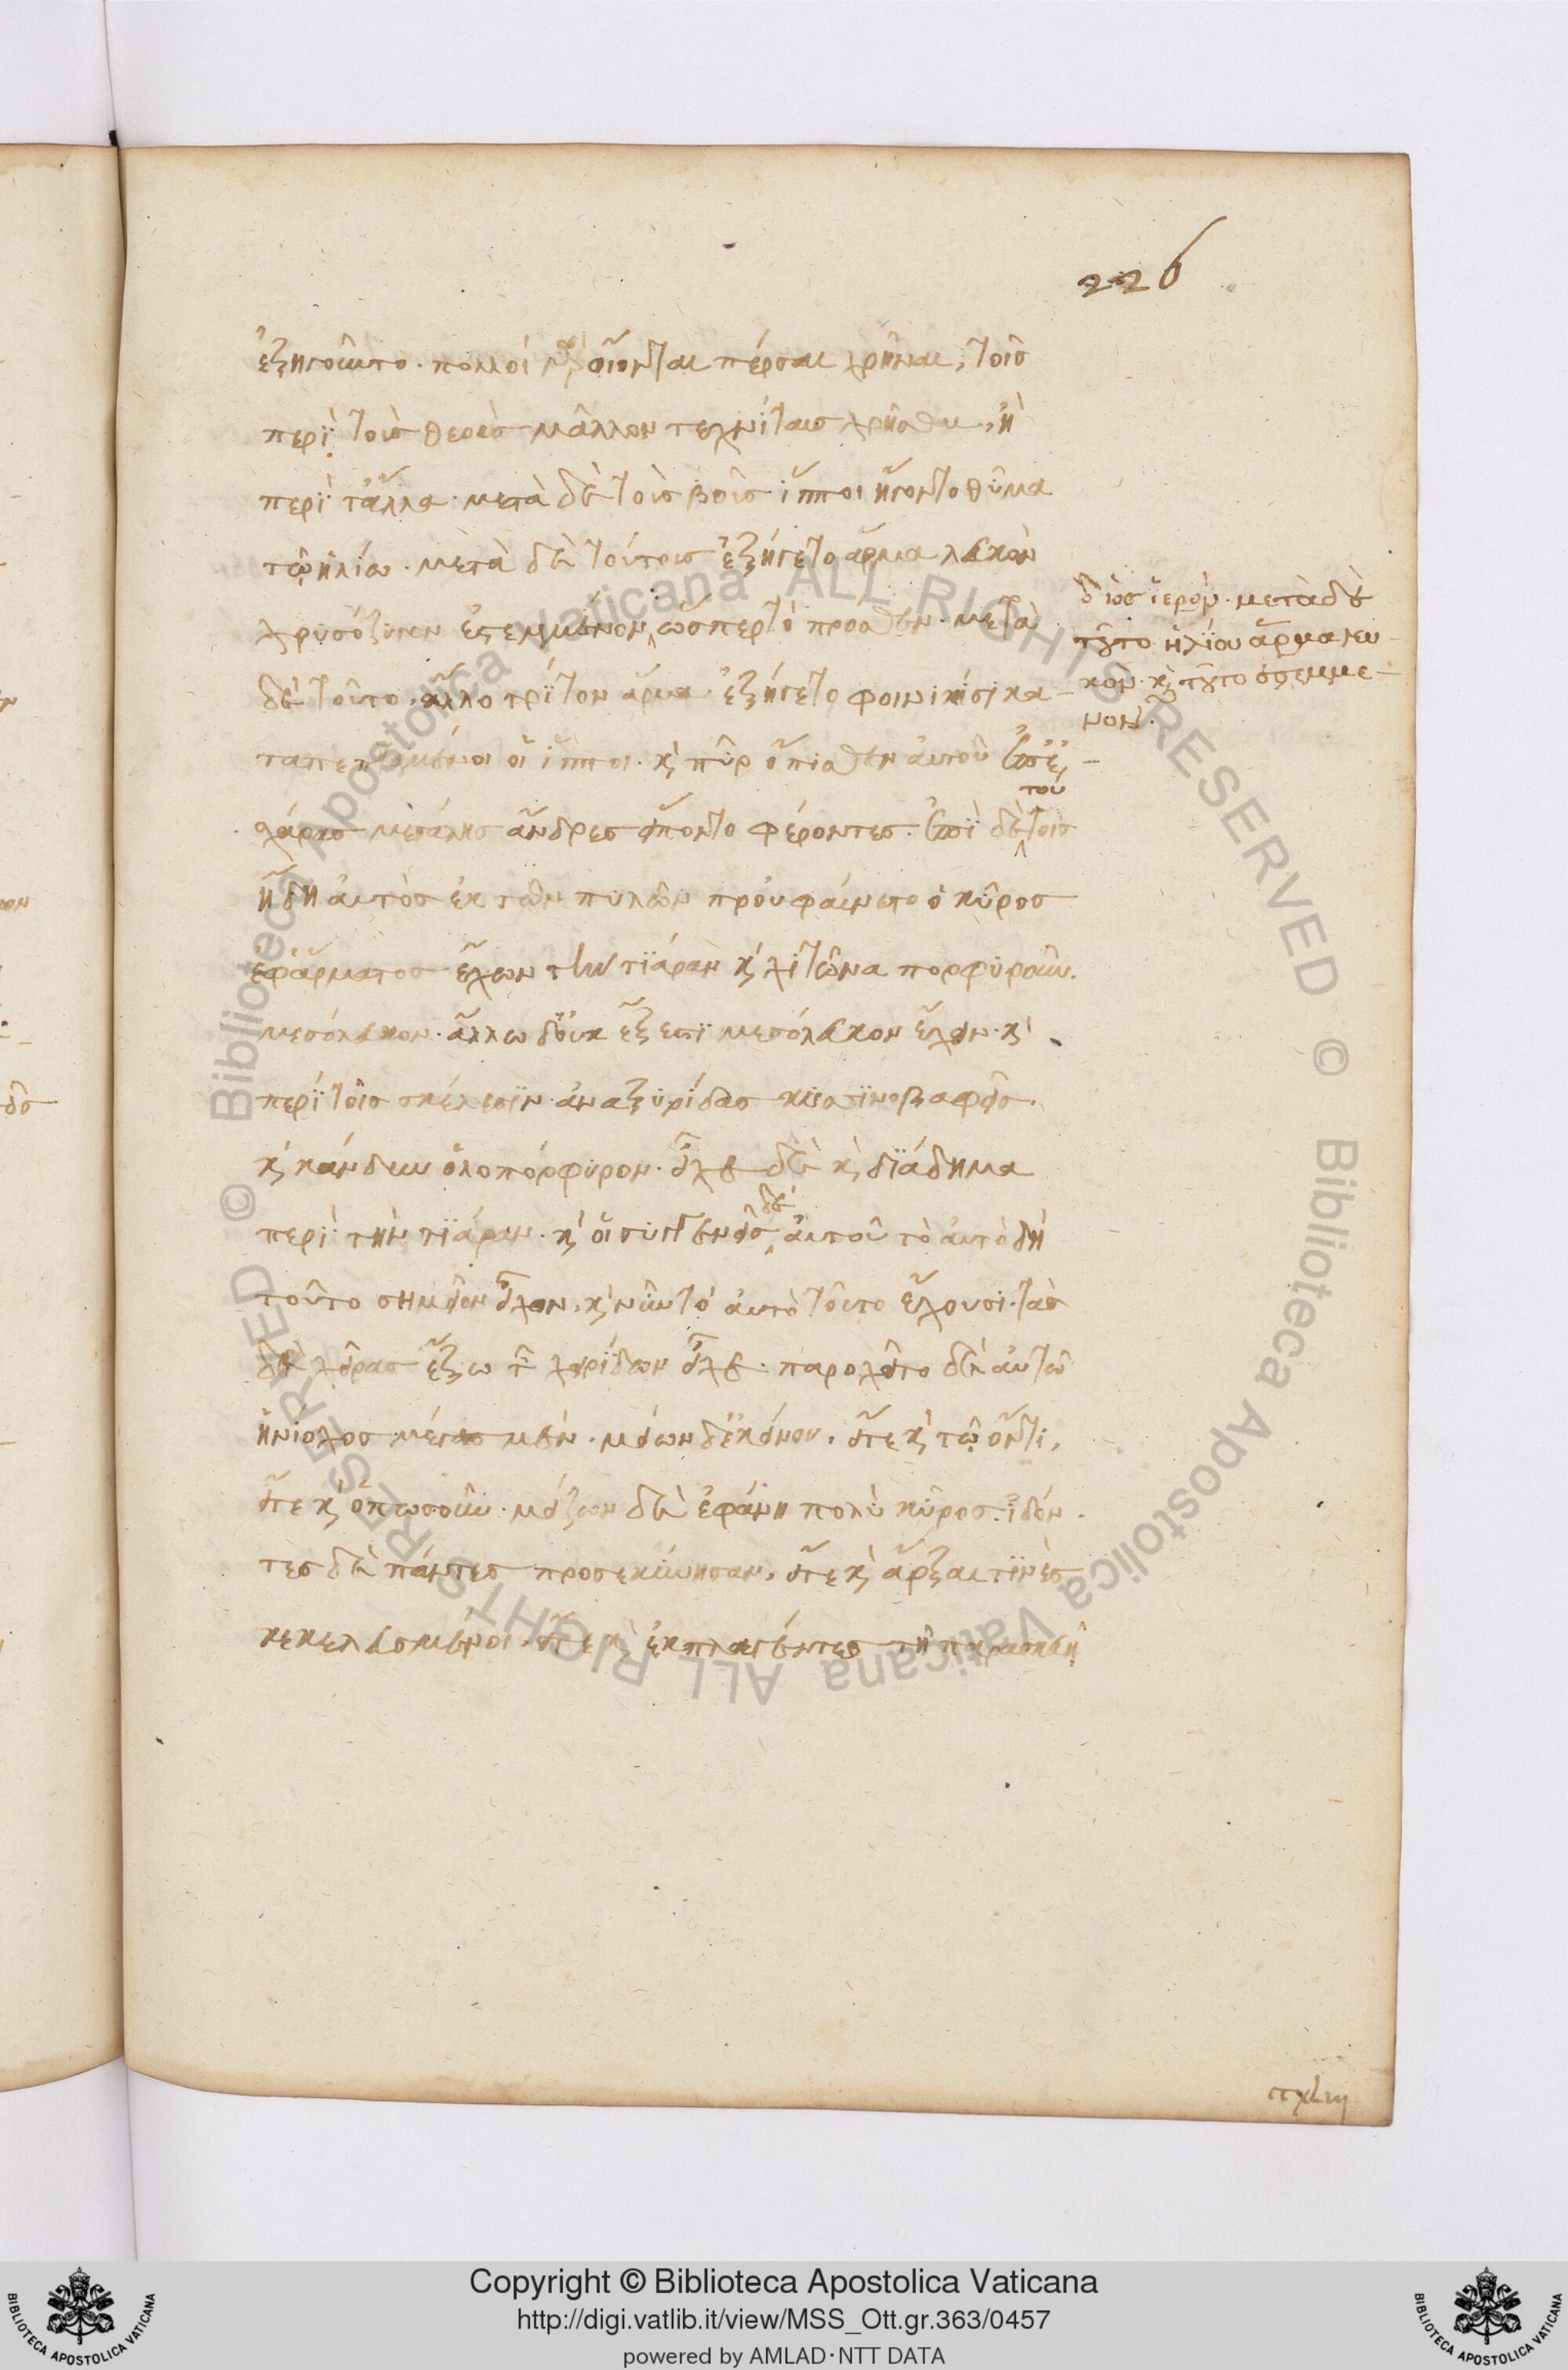 226
ἐξηγοῦντο. πολὺ γὰρ οἴονται πέρσαι χρῆναι, τοῖς
περὶ τοὺς θεοὺς μᾶλλον τεχνίταις χρῆσθαι, ἢ
περὶ τἄλλα. μετὰ δὲ τοὺς βοῦς ἵπποι ἤγοντο θῦμα
τῷ ἡλίῳ. μετὰ δὲ τούτους ἐξήγετο ἅρμα λευκὸν
χρυσόζυγον ἐστεμμένον ὥσπερ τὸ πρόσθεν. μετὰ
δὲ τοῦτο, ἄλλο τρίτον ἅρμα ἐξήγετο φοινικίσι κα-
ταπεπταμένοι οἱ ἵπποι. καὶ πῦρ ὄπισθεν αὐτοῦ ἐπὶ ἐ-
χάρας μεγάλης ἄνδρες εἵποντο φέροντες. ἐπὶ δὲ τούτοις
ἤδη αὐτὸς ἐκ τῶν πυλῶν προὐφαίνετο ὁ κῦρος
ἐφ' ἅρματος ἔχων τὴν τιάραν καὶ χιτῶνα πορφυροῦν.
μεσόλευκον. ἄλλω δ' οὐκ ἔξεστι μεσόλευκον ἔχειν. καὶ
περὶ τοῖς σκέλεσιν ἀναξυρίδας ὑσγινοβαφεῖς.
καὶ κάνδυν ὁλοπόρφυρον. εἶχε δὲ καὶ διάδημα
περὶ τὴν τιάραν. καὶ οἱ συγγενεῖς δὲ αὐτοῦ τὸ αὐτὸ δὴ
τοῦτο σημεῖον εἶχον. καὶ νῦν τὸ αὐτὸ τοῦτο ἔχουσι. τὰς
δὲ χεῖρας ἔξω τῶν χειρίδων εἶχε. παρωχεῖτο δὲ αὐτῶ
ἡνίοχος μέγας μὲν. μείων δ' ἐκείνου. εἴτε καὶ τῷ ὄντι,
εἴτε καὶ ὁπωσοῦν. μείζων δὲ ἐφάνη πολὺ κῦρος. ἰδόν-
τες δὲ πάντες προσεκύνησαν, εἴτε καὶ ἄρξαι τινὲς
κεκελευσμένοι. εἴτε καὶ ἐκπλαγέντες τῇ παρασκευῇ
διὸς ἱερόν. μετὰ δὲ
τοῦτο ἡλίου ἅρμα λευ-
κὸν. καὶ τοῦτο ἐστεμμέ-
νον.
Copyright © Biblioteca Apostolica Vaticana
http://digi.vatlib.it/view/MSS_Ott.gr.363/0457
powered by AMLAD·NTT DATA